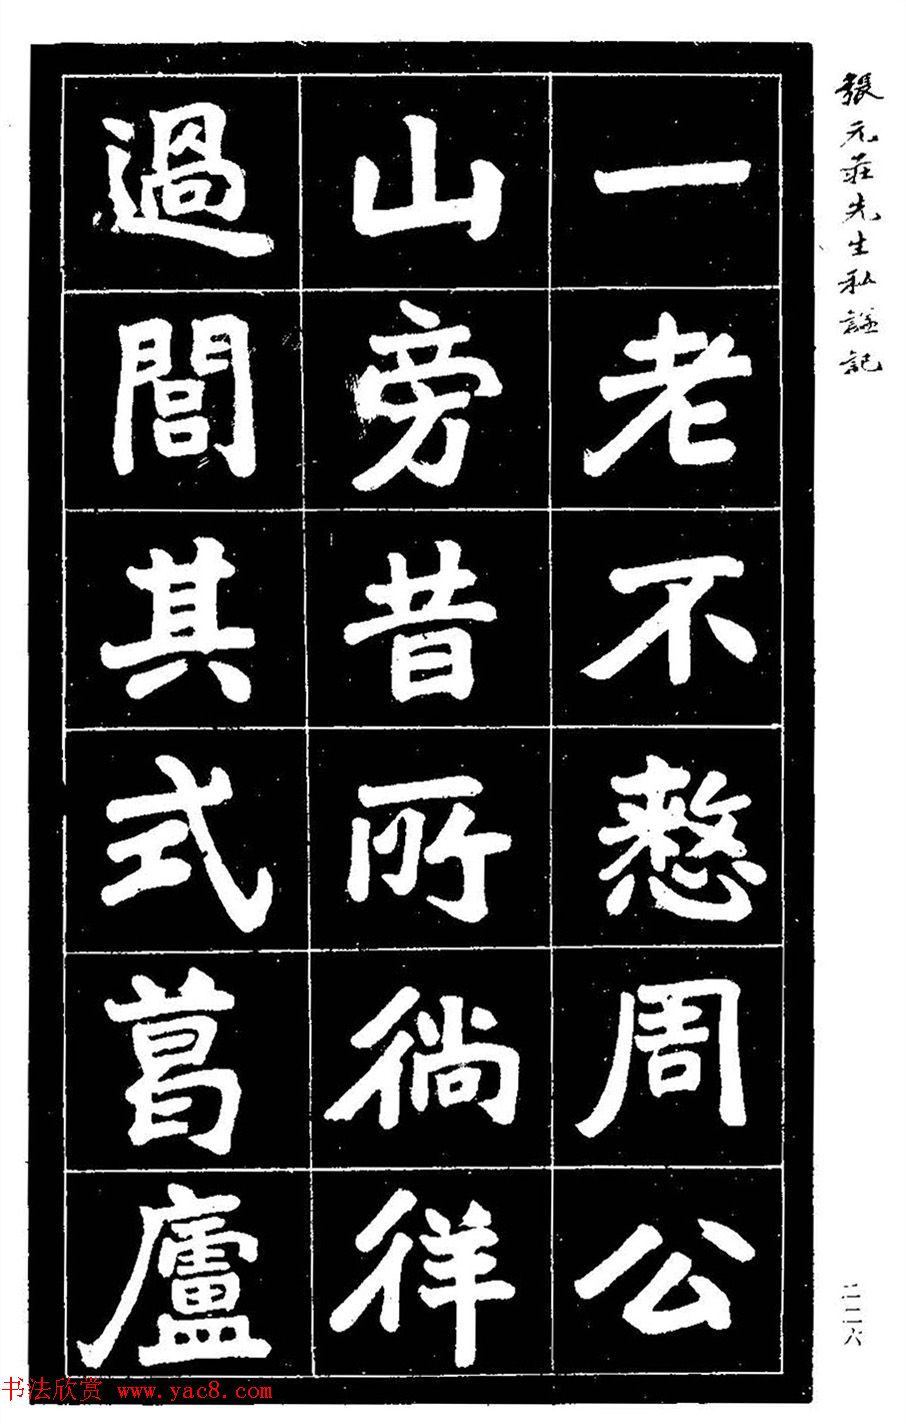 張元莊先生私謚記
一老不憗周公
山旁昔所徜徉
過閭其式菖廬
二二六
书法欣赏 www.yac8.com